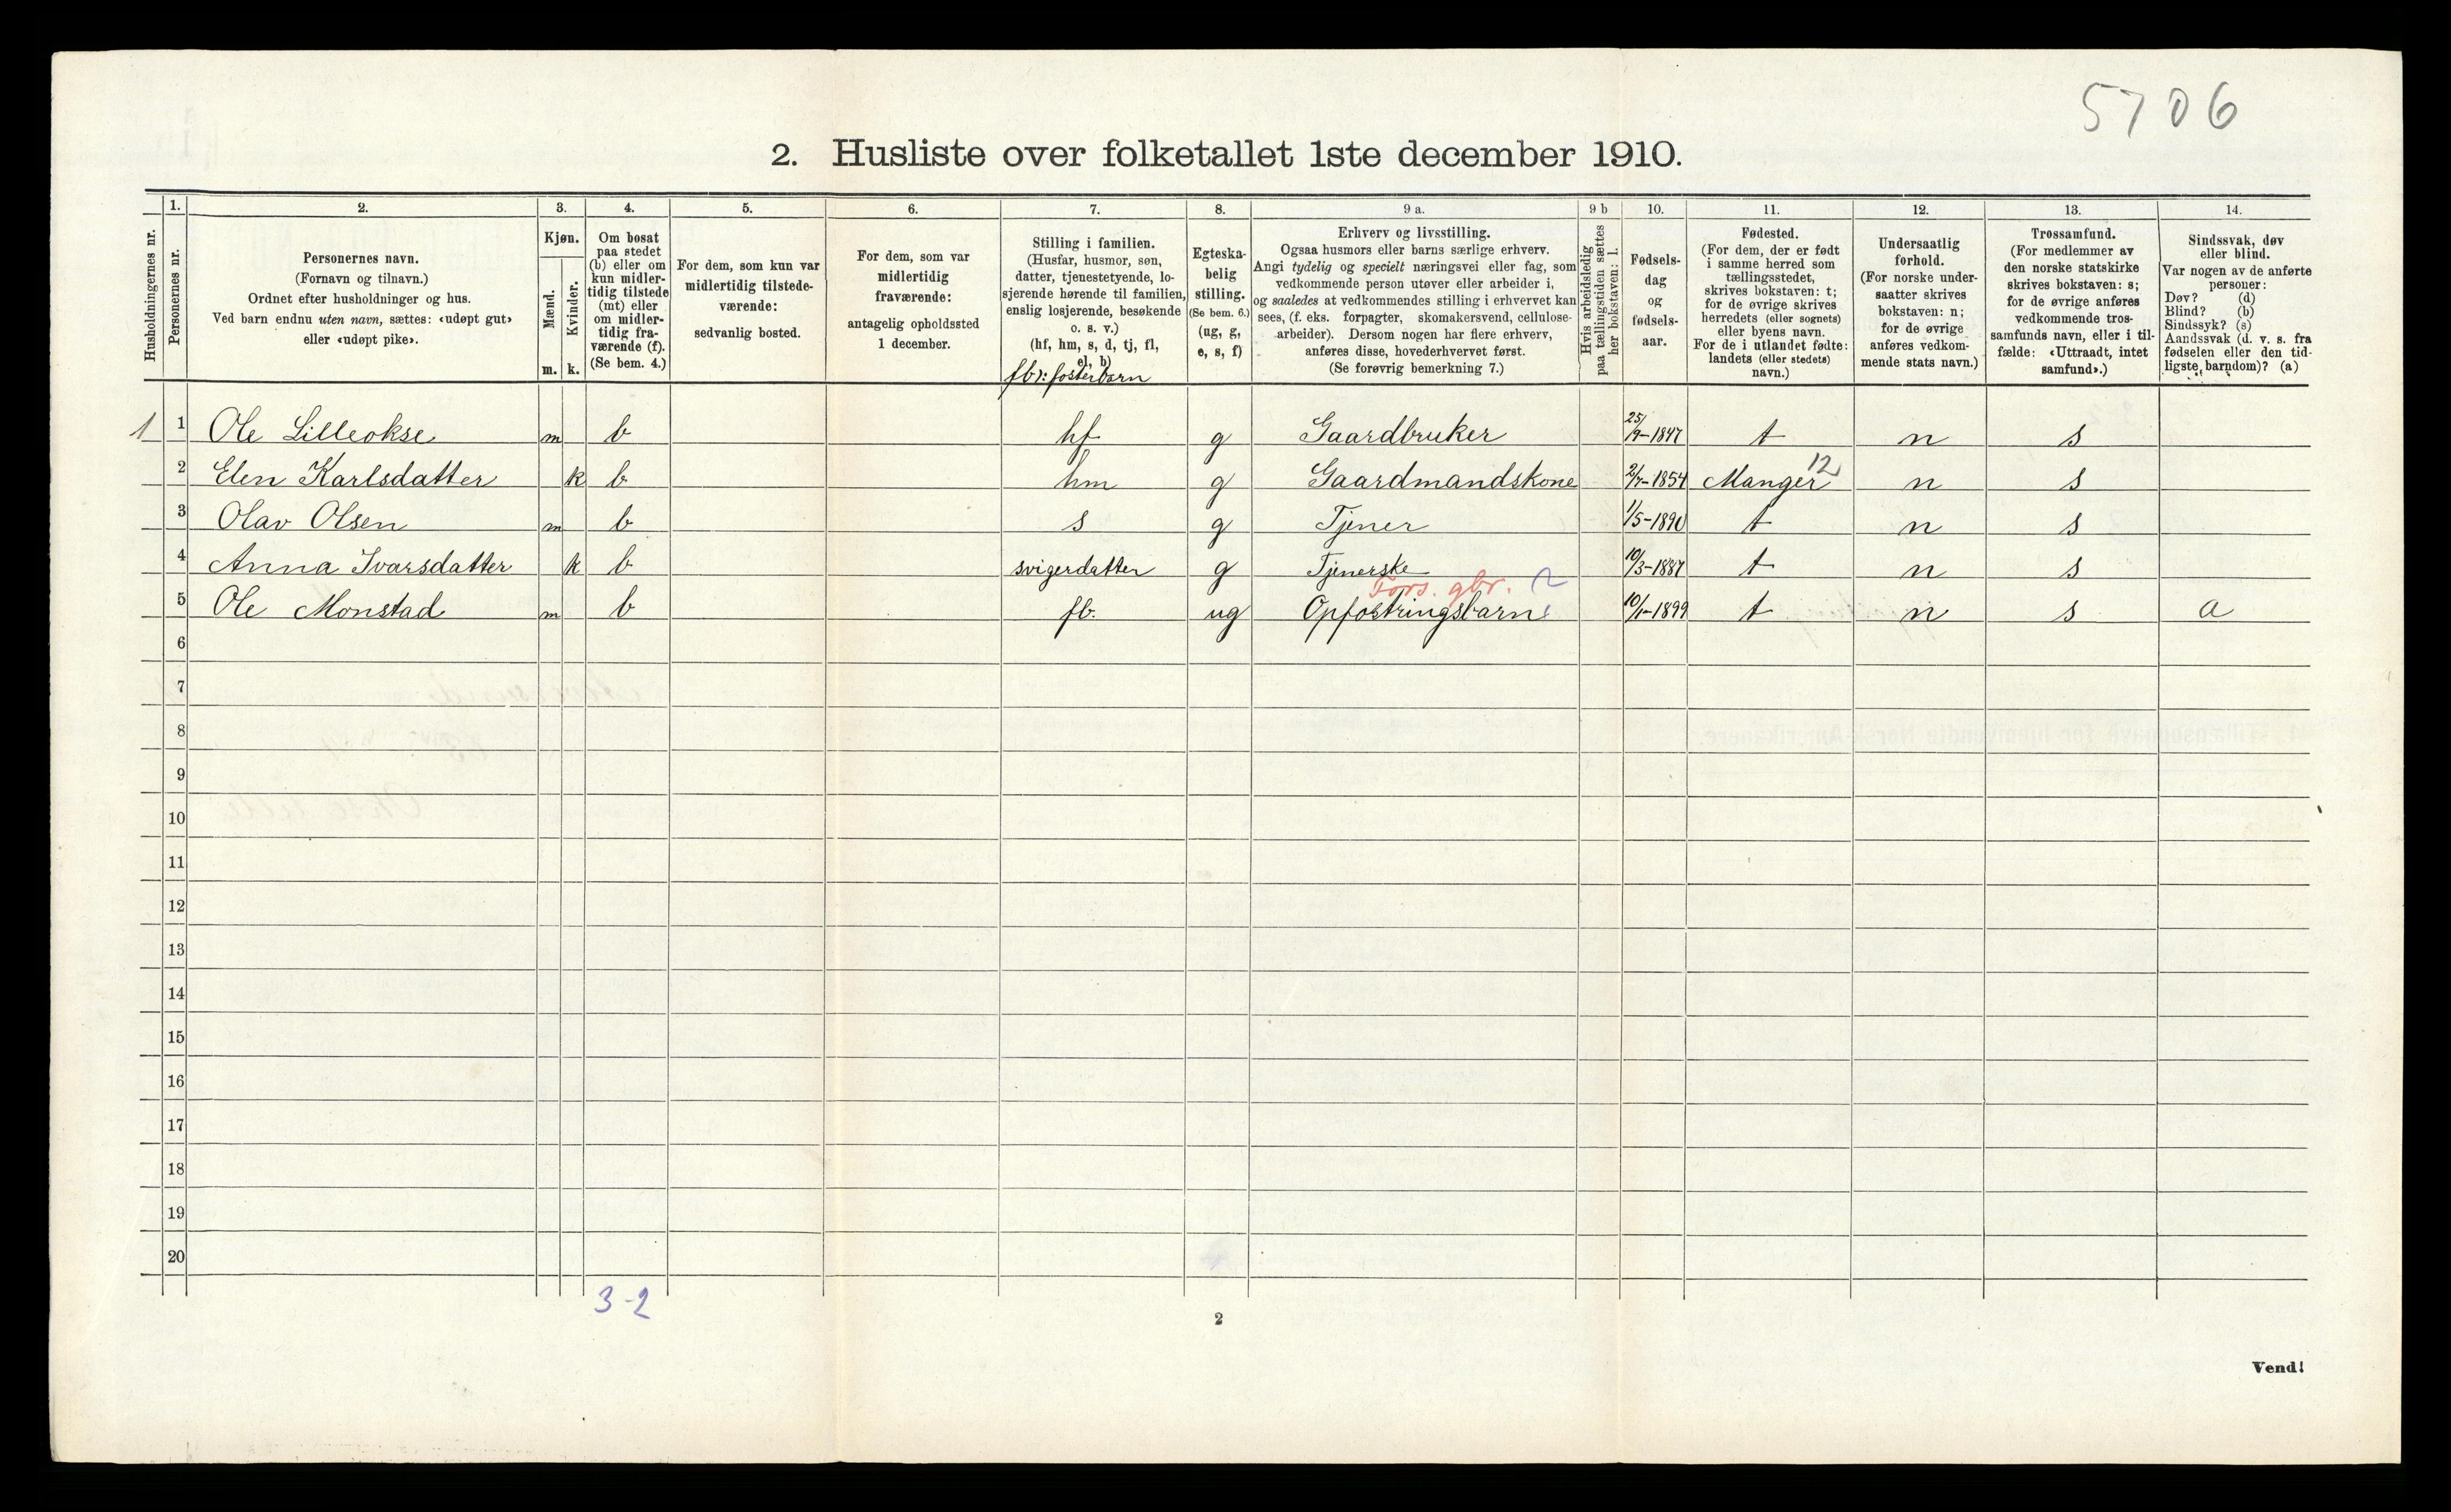 5706
2. Husliste over folketallet 1ste december 1910.
Husholdningernes nr.
1.
Personernes nr.
2.
Personernes navn.
(Fornavn og tilnavn.)
Ordnet efter husholdninger og hus.
Ved barn endnu uten navn, sættes: «udøpt gut»
eller «udøpt pike».
3.
Kjøn.
Mænd.
Kvinder.
m. k.
4.
Om bosat
paa stedet
(b) eller om
kun midler-
tidig tilstede
(mt) eller
om midler-
tidig fra-
værende (f).
(Se bem. 4.)
5.
For dem, som kun var
midlertidig tilstede-
værende:
sedvanlig bosted.
6.
For dem, som var
midlertidig
fraværende:
antagelig opholdssted
1 december.
7.
Stilling i familien.
(Husfar, husmor, søn,
datter, tjenestetyende, lo-
sjerende hørende til familien,
enslig losjerende, besøkende
o. s. v.)
(hf, hm, s, d, tj, fl,
el, b)
fb): fosterbarn
8.
Egteska-
belig
stilling.
(Se bem. 6.)
(ug, g,
e, s, f)
9 a.
Erhverv og livsstilling.
Ogsaa husmors eller barns særlige erhverv.
Angi tydelig og specielt næringsvei eller fag, som
vedkommende person utøver eller arbeider i,
og saaledes at vedkommendes stilling i erhvervet kan
sees, (f. eks. forpagter, skomakersvend, cellulose-
arbeider). Dersom nogen har flere erhverv,
anføres disse, hovederhvervet først.
(Se forøvrig bemerkning 7.)
9 b
Hvis arbeidsledig
paa tællingstiden sættes
her bokstaven: l.
10.
Fødsels-
dag
og
fødsels-
aar.
11.
Fødested.
(For dem, der er født
i samme herred som
tællingsstedet,
skrives bokstaven: t;
for de øvrige skrives
herredets (eller sognets)
eller byens navn.
For de i utlandet fødte:
landets (eller stedets)
navn.)
12.
Undersaatlig
forhold.
(For norske under-
saatter skrives
bokstaven: n;
for de øvrige
anføres vedkom-
mende stats navn.)
13.
Trossamfund.
(For medlemmer av
den norske statskirke
skrives bokstaven: s;
for de øvrige anføres
vedkommende tros-
samfunds navn, eller i til-
fælde: «Uttraadt, intet
samfund».)
14.
Sindssvak, døv
eller blind.
Var nogen av de anførte
personer:
Døv? (d)
Blind? (b)
Sindssyk? (s)
Aandssvak (d. v. s. fra
fødselen eller den tid-
ligste barndom)? (a)
1 1 Ole Lilleokse m b hf g Gaardbruker 25/9-1847 t n s
2 Elen Karlsdatter k b hm g Gaardmandskone 2/7-1854 Manger 12 n s
3 Olav Olsen m b s g Tjener 1/5-1890 t n s
4 Anna Ivarsdatter k b svigerdatter g Tjenerske 10/3-1887 t n s
Fors. gbr.
5 Ole Monstad m b fb. ug Opfostringsbarn 10/1-1899 t n s a
6
7
8
9
10
11
12
13
14
15
16
17
18
19
20
3-2
2
Vend!